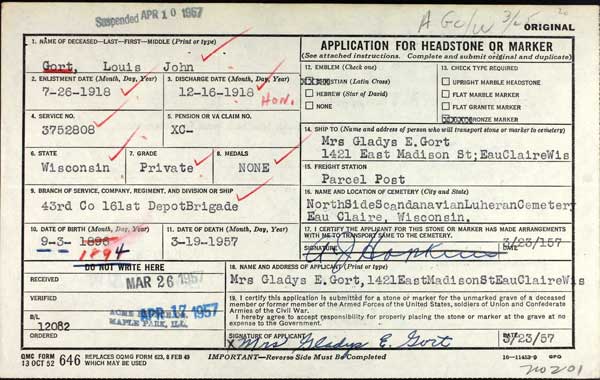 Suspended APR 10 1957
A GC/W 3/25
ORIGINAL
1. NAME OF DECEASED—LAST—FIRST—MIDDLE (Print or type)
Gort, Louis John
2. ENLISTMENT DATE (Month, Day, Year)
7-26-1918
3. DISCHARGE DATE (Month, Day, Year)
12-16-1918
Hon.
4. SERVICE NO.
3752808
5. PENSION OR VA CLAIM NO.
XC-
6. STATE
Wisconsin
7. GRADE
Private
8. MEDALS
NONE
9. BRANCH OF SERVICE, COMPANY, REGIMENT, AND DIVISION OR SHIP
43rd Co 161st DepotBrigade
10. DATE OF BIRTH (Month, Day, Year)
9-3- 1896
1894
11. DATE OF DEATH (Month, Day, Year)
3-19-1957
DO NOT WRITE HERE
RECEIVED
MAR 26 1957
VERIFIED
APR 17 1957
MAPLE PARK, ILL.
B/L
12082
ORDERED
APPLICATION FOR HEADSTONE OR MARKER
(See attached instructions. Complete and submit original and duplicate)
12. EMBLEM (Check one)
CHRISTIAN (Latin Cross)
HEBREW (Star of David)
NONE
13. CHECK TYPE REQUIRED
UPRIGHT MARBLE HEADSTONE
FLAT MARBLE MARKER
FLAT GRANITE MARKER
BRONZE MARKER
14. SHIP TO (Name and address of person who will transport stone or marker to cemetery)
Mrs Gladys E.Gort
1421 East Madison St;EauClaireWis
15. FREIGHT STATION
Parcel Post
16. NAME AND LOCATION OF CEMETERY (City and State)
NorthSideScandanavianLuheranCemetery
Eau Claire, Wisconsin.
17. I CERTIFY THE APPLICANT FOR THIS STONE OR MARKER HAS MADE ARRANGEMENTS
WITH ME TO TRANSPORT SAME TO THE CEMETERY.
SIGNATURE
Hopkins
DATE
3/23/157
18. NAME AND ADDRESS OF APPLICANT (Print or type)
Mrs Gladys E.Gort,1421EastMadisonStEauClaireWis
19. I certify this application is submitted for a stone or marker for the unmarked grave of a deceased
member or former member of the Armed Forces of the United States, soldiers of Union and Confederate
Armies of the Civil War.
I hereby agree to accept responsibility for properly placing the stone or marker at the grave at no
expense to the Government.
SIGNATURE
X Mrs Gladys E. Gort
DATE
3/23/57
QMC FORM
13 OCT 52
646
REPLACES OQMG FORM 623, 8 FEB 49
WHICH MAY BE USED
IMPORTANT—Reverse Side Must be Completed
16—11413-9
GPO